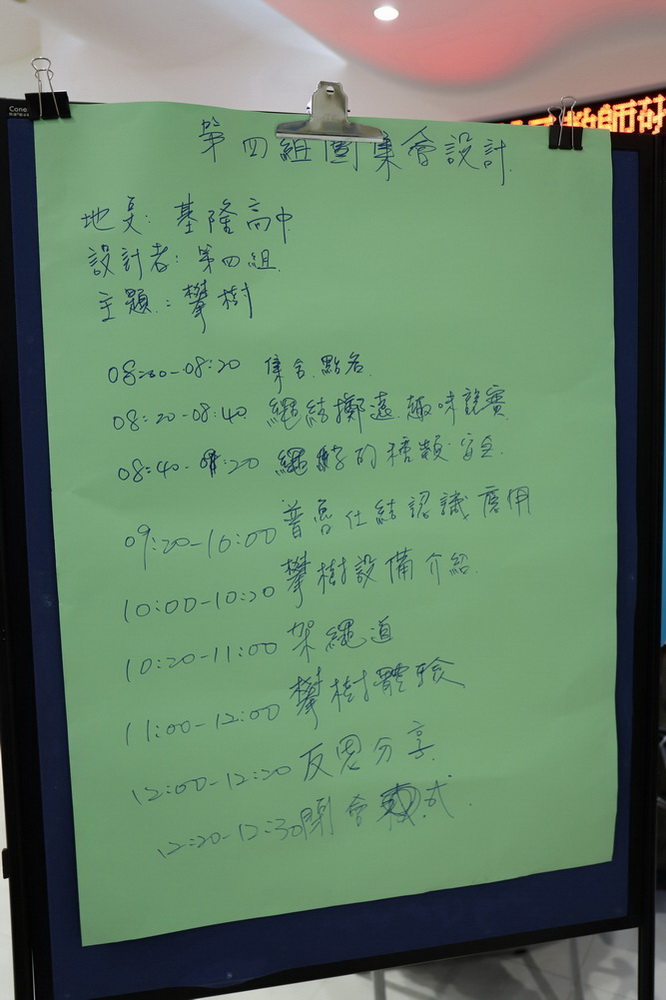 第四組團集會設計
地點: 基隆高中
設計者: 第四組
主題: 攀樹
08:00-08:20 集合.點名.
08:20-08:40 繩結擲遠.趣味競賽
08:40-09:20 繩結的種類.安全.
09:20-10:00 普魯仕結認識應用
10:00-10:20 攀樹設備介紹.
10:20-11:00 架繩道
11:00-12:00 攀樹體驗
12:00-12:20 反思分享
12:20-12:30 閉會 式.
Cone
教師研